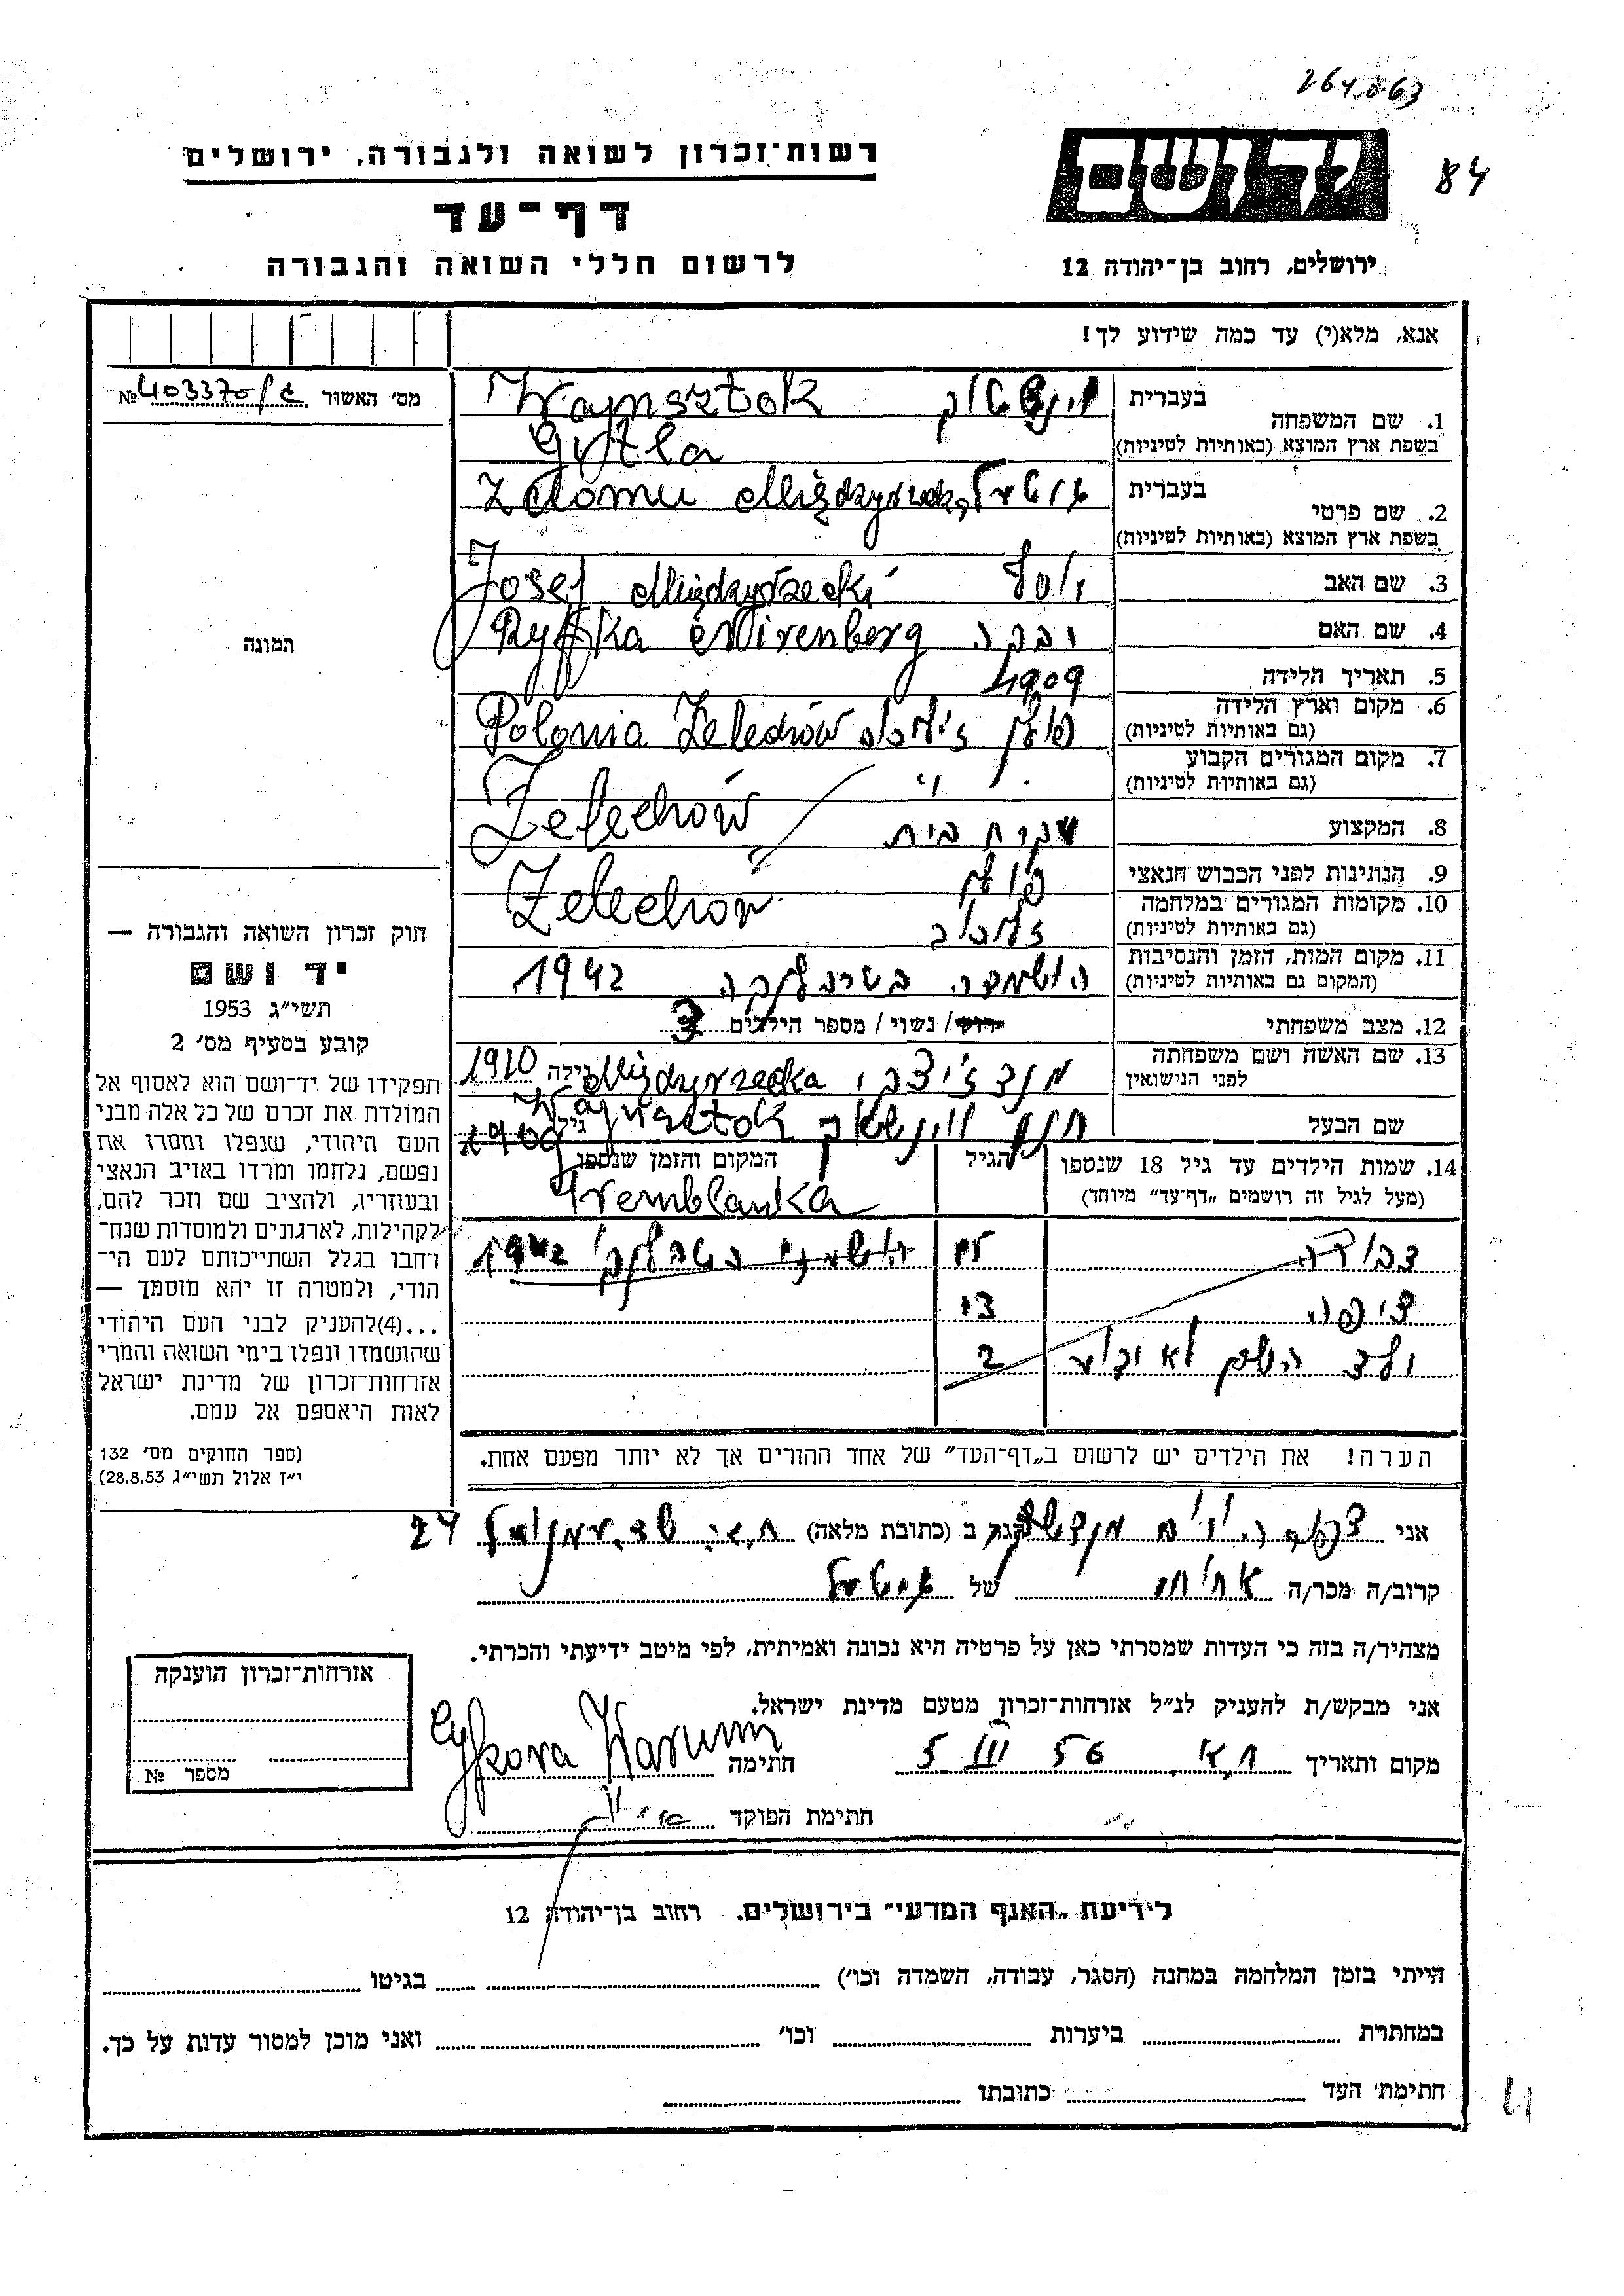 264863
84
רשות־זכרון לשואה ולגבורה, ירושלים
ידושם
דף־עד
לרשום חללי השואה והגבורה
ירושלים, רחוב בן־יהודה 12
אנא, מלא(י) עד כמה שידוע לך!
מס׳ האשור 403370/ג №
תמונה
1. שם המשפחה
בעברית
בשפת ארץ המוצא (באותיות לטיניות)
Wajnsztok
Gytla
2. שם פרטי
בעברית גיטל
בשפת ארץ המוצא (באותיות לטיניות)
Zdomu Międzyrzecka
3. שם האב יוסף Josef Międzyrzecki
4. שם האם רבקה Ryfka Mirenberg
5. תאריך הלידה 1909
6. מקום וארץ הלידה
(גם באותיות לטיניות)
פולין Polonia Żelechów
7. מקום המגורים הקבוע
(גם באותיות לטיניות)
Żelechów
8. המקצוע עקרת בית
9. הנתינות לפני הכבוש הנאצי פולין
10. מקומות המגורים במלחמה
(גם באותיות לטיניות)
Żelechów
11. מקום המות, הזמן והנסיבות
(המקום גם באותיות לטיניות)
הושמדה בטרבלינקה 1942
12. מצב משפחתי רווק / נשוי / מספר הילדים 3
13. שם האשה ושם משפחתה
לפני הנישואין
Międzyrzecka גילה 1910
שם הבעל Wajnsztok גיל 1900
14. שמות הילדים עד גיל 18 שנספו
(מעל לגיל זה רושמים „דף־עד״ מיוחד)
הגיל
המקום והזמן שנספו
Tremblanka
דבורה 1942
ציפה
ילד השם לא ידוע 2
הערה! את הילדים יש לרשום ב„דף־העד״ של אחד ההורים אך לא יותר מפעם אחת.
חוק זכרון השואה והגבורה —
יד ושם
תשי״ג 1953
קובע בסעיף מס׳ 2
תפקידו של יד־ושם הוא לאסוף אל
המולדת את זכרם של כל אלה מבני
העם היהודי, שנפלו ומסרו את
נפשם, נלחמו ומרדו באויב הנאצי
ובעוזריו, ולהציב שם וזכר להם,
לקהילות, לארגונים ולמוסדות שנח־
רחבו בגלל השתייכותם לעם הי־
הודי, ולמטרה זו יהא מוסמך —
...(4)להעניק לבני העם היהודי
שהושמדו ונפלו בימי השואה והמרי
אזרחות־זכרון של מדינת ישראל
לאות היאספם אל עמם.
(ספר החוקים מס׳ 132
י״ז אלול תשי״ג 28.8.53)
אני הגר ב (כתובת מלאה) 24
קרוב/ה מכר/ה אחות של גיטל
מצהיר/ה בזה כי העדות שמסרתי כאן על פרטיה היא נכונה ואמיתית, לפי מיטב ידיעתי והכרתי.
אני מבקש/ת להעניק לנ״ל אזרחות־זכרון מטעם מדינת ישראל.
מקום ותאריך ת.א. 5 III 56 חתימה Cypora Warum
חתימת הפוקד
אזרחות־זכרון הוענקה
מספר №
לידיעת „האגף המדעי״ בירושלים. רחוב בן־יהודה 12
הייתי בזמן המלחמה במחנה (הסגר, עבודה, השמדה וכו׳) בגיטו
במחתרת ביערות וכו׳ ואני מוכן למסור עדות על כך.
חתימת העד כתובתו